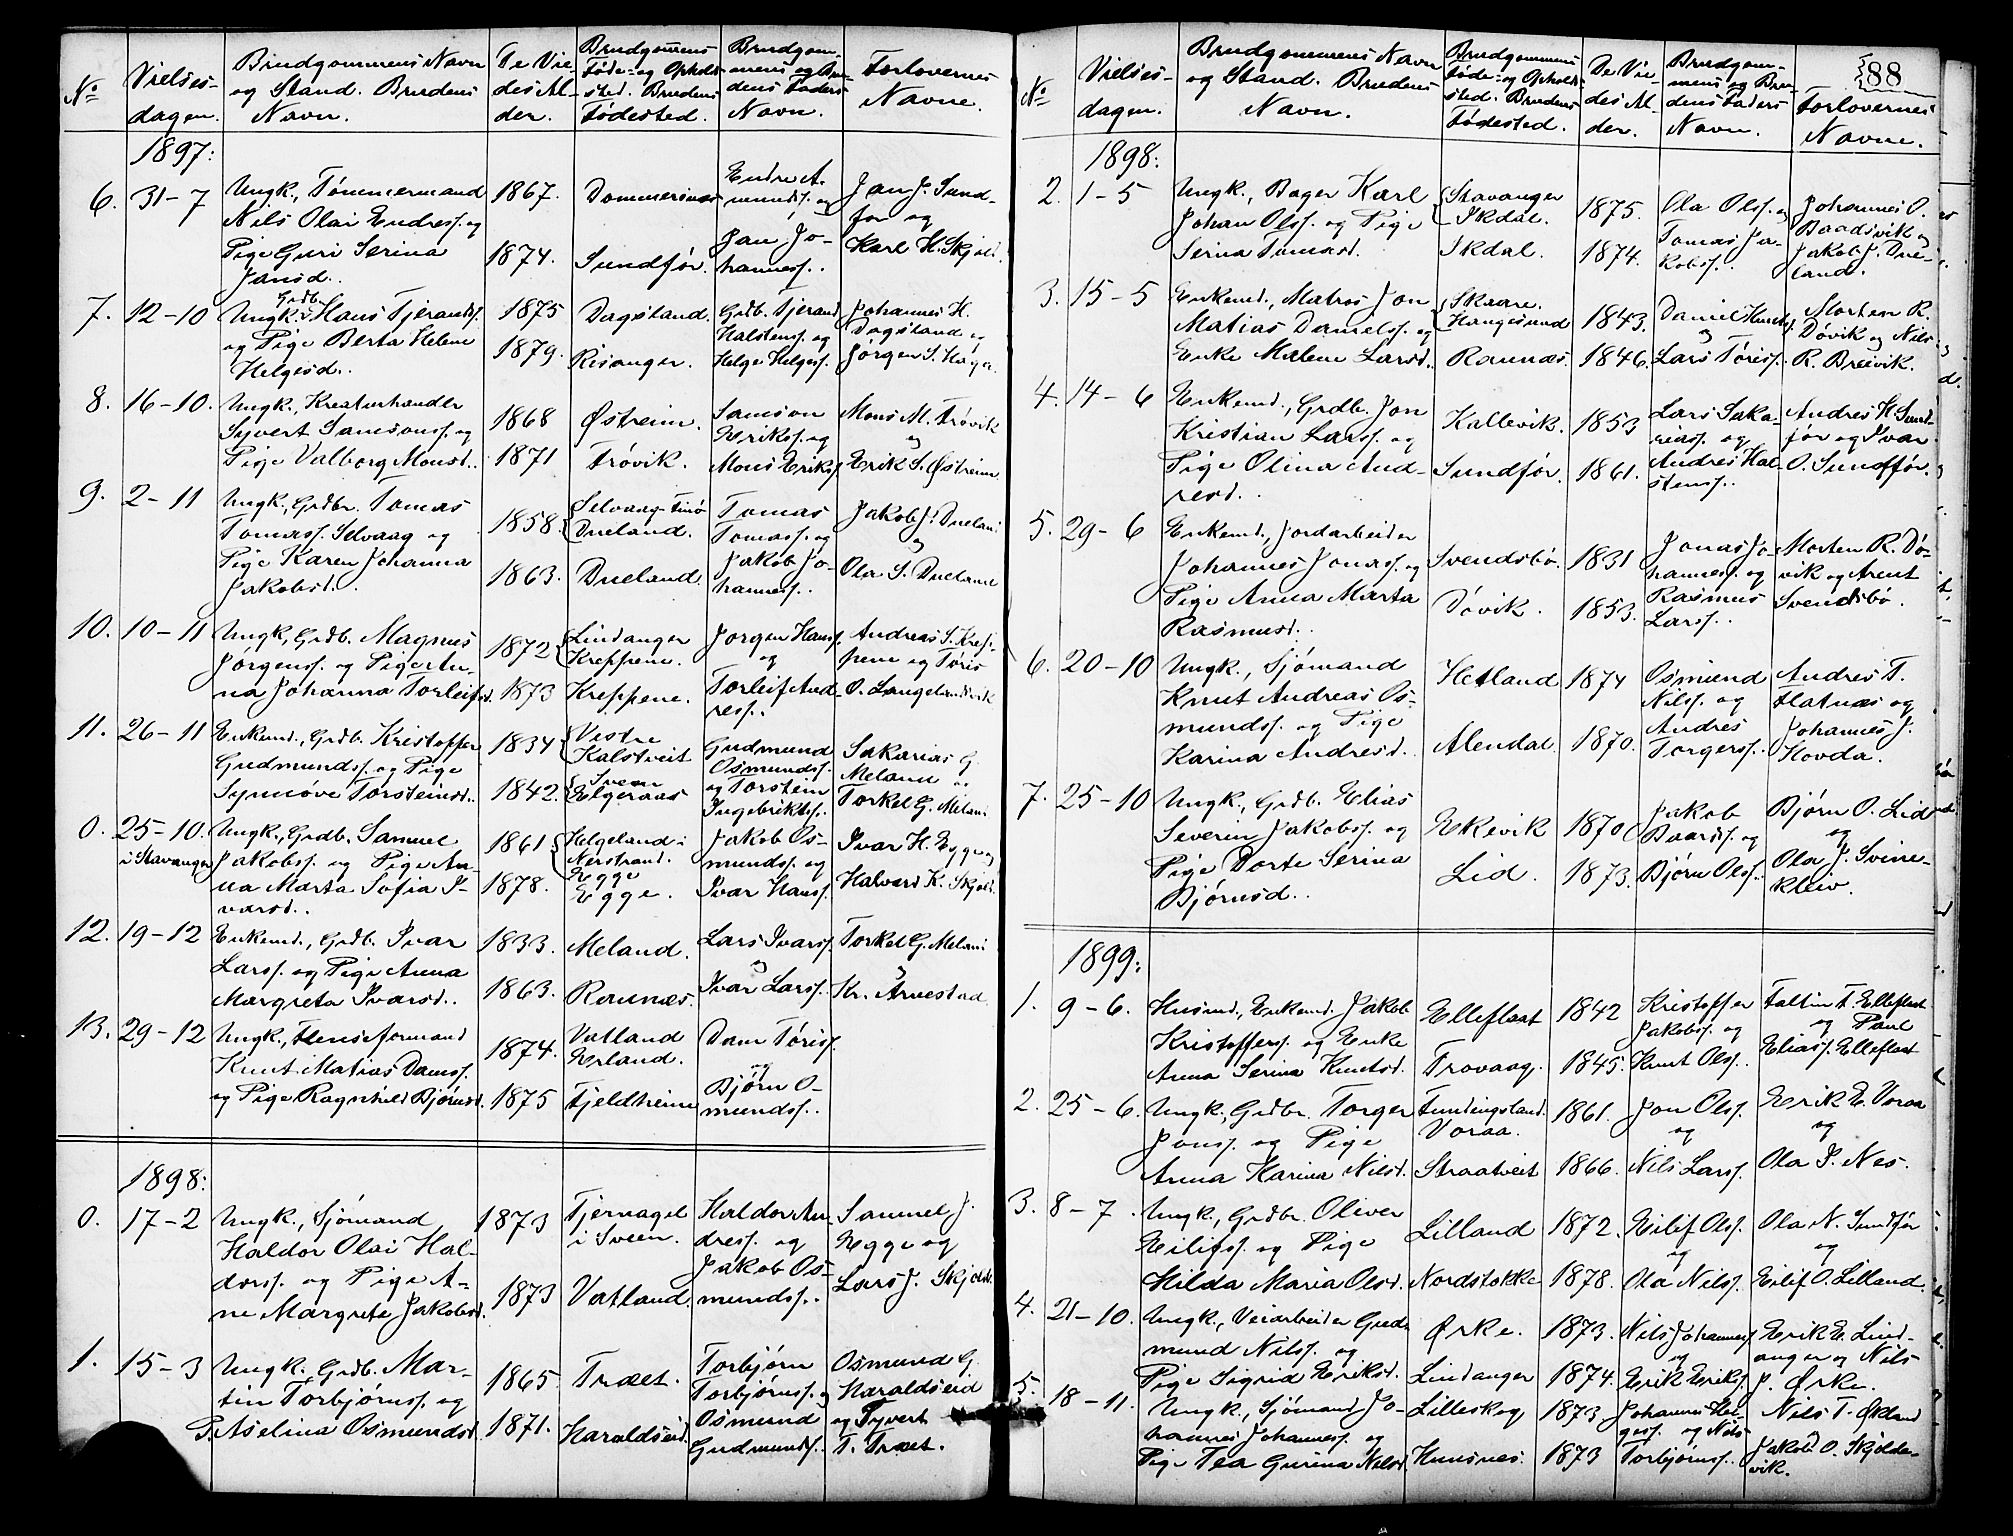 No
Vielses-
dagen.
Brudgommens Navn
og Stand. Brudens
Navn.
De Vie-
des Al-
der.
Brudgommens
Føde- og Ophold-
sted. Brudens
Fødested.
Brudgom-
mens og Bru-
dens Faders
Navn.
Forlovernes
Navne.
1897:
6. 31-7
Ungk., Tømmermand
Nils Olai Endress. og
Pige Guri Serina
Jansd.
1867.
1874.
Dommersnes
Sundfør.
Endre A-
mundss. og
Jan Jo-
hanness.
Jan J. Sund-
før og
Karl H. Skjold.
7. 12-10
Grdb.
Ungk. Hans Tjerandss.
og Pige Berta Helene
Helgesd.
1875
1879.
Dagsland.
Risanger.
Grdb. Tjerand
Halstens. og
Helge Helgess.
Johannes H.
Dagsland og
Jørgen S. Høyer.
8. 16-10.
Ungk., Kreaturhandler
Syvert Samsons. og
Pige Valborg Monsd.
1868
1871
Østreim.
Trøvik.
Samson
Eriks. og
Mons Eriks.
Mons M. Trøvik
og
Erik S. Østreim
9. 2-11
Ungk., Grdbr. Tomas
Tomass. Selvaag og
Pige Karen Johanna
Jakobsd.
1858.
1863.
Selvaag-Finø
Dueland.
Dueland.
Tomas
Tomass. og
Jakob Jo-
hanness.
Jakob J. Dueland
og
Ola S. Dueland
10. 10-11
Ungk., Grdb. Magnus
Jørgens. og Pige An-
na Johanna Torleifsd.
1872
1873
Lindanger
Kreppene.
Kreppene.
Jørgen Hanss.
og
Torleif And-
ress.
Andreas S. Krep-
pene og Tøris
O. Langelandsvik
11. 26-11
Enkemd., Grdb. Kristoffer
Gudmunds. og Pige
Synnøve Torsteinsd.
1834
1842.
Vestre
Kalstveit
Sveen
Elgeraas
Gudmund
Osmunds.
og Torstein
Ingebrikts.
Sakarias G.
Meland og
Torkel G. Meland
0. 25-10.
i Stavanger
Ungk., Grdb. Samuel
Jakobs. og Pige An-
na Marta Sofia I-
varsd.
1861
1878.
Helgeland i
Nerstrand.
Egge
Egge.
Jakob Os-
munds. og
Ivar Hans.
Ivar H. Egge og
Halvard K. Skjold.
12. 19-12
Enkemd., Grdb. Ivar
Larss. og Pige Anna
Margreta Ivarsd.
1833.
1863.
Meland.
Raunæs.
Lars Ivars.
og
Ivar Lars.
Torkel G. Meland
og
Kr. Arnestad.
13. 29-12
Ungk.,
Knut Matias Dams.
og Pige Ragnhild Bjørnsd.
1874.
1875
Vatland
Erland.
Fjeldheim
Dam Tøris.
og
Bjørn O-
munds.
1898:
0. 17-2
Ungk., Sjømand
Haldor Olai Hal-
dors. og Pige A-
ne Margreta Jakobsd.
1873
1873
Tjernagel
i Sveen.
Vatland
Haldor An-
dress. og
Jakob Os-
munds.
Samuel J.
Egge og
Lars J. Skjold.
1. 15-3
Ungk. Grdb. Mar-
tin Torbjørns. og
P. Aselina Osmundsd.
1865.
1871.
Træet.
Haraldseid.
Torbjørn
Torbjørns. og
Osmund
Gudmunds.
Osmund G.
Haraldseid
og Syvert
T. Træet.
88
No
Vielses-
dagen.
Brudgommens Navn
og Stand. Brudens
Navn.
Brudgommens
Føde- og Ophold-
sted. Brudens
Fødested.
De Vie-
des Al-
der.
Brudgom-
mens og Bru-
dens Faders
Navn.
Forlovernes
Navne.
1898:
2. 1-5
Ungk., Bager Karl
Johan Olss. og Pige
Serina Tomasd.
Stavanger
Ikdal.
Ikdal.
1875.
1874.
Ola Ols. og
Tomas Ja-
kobs.
Johannes O.
Baadsvik og
Jakob J. Due-
land.
3. 15-5
Enkemd., Matros Jon
Matias Daniels. og
Enke Malene Larsd.
Skaare.
Haugesund
Raunæs.
1843.
1846.
Daniel Knuts.
og
Lars Tøris.
Morten R.
Døvik og Nils
R. Breivik.
4. 14-6
Enkemd., Grdb. Jon
Kristian Larss. og
Pige Olina And-
resd.
Kallevik.
Sundfør.
1853
1861.
Lars Saka-
rias. og
Andres Hal-
stens.
Andres H. Sund-
før og Ivar
O. Sundfør.
5. 29-6
Enkemd., Jordarbeider
Johannes Jonass. og
Pige Anna Marta
Rasmusd.
Svendsbø.
Døvik.
1831
1853.
Jonas Jo-
hannes. og
Rasmus
Larss.
Morten R. Dø-
vik og Arent
Svendsbø.
6. 20-10
Ungk., Sjømand
Knut Andreas Os-
munds. og Pige
Karina Andresd.
Hetland
Alendal.
1874
1870.
Osmund
Nils. og
Andres
Torgers.
Andres T.
Flatnæs og
Johannes J.
Hovda.
7. 25-10
Ungk., Grdb. Elias
Severin Jakobs. og
Pige Dorte Serina
Bjørnsd.
Ekevik
Lid.
1870
1873.
Jakob
Baards. og
Bjørn Ols.
Bjørn O. Lid
og
Ola J. Svine-
kleiv.
1899:
1. 9-6.
Husmd., Enkemd. Jakob
Kristoffers. og Enke
Anna Serina Knutsd.
Elleflaat
Trovaag.
1842
1845.
Kristoffer
Jakobs. og
Knut Ols.
Faltin T. Elleflaat
og Paul
Elias. Elleflaat
2. 25-6.
Ungk., Grdbr. Torger
Jons. og Pige
Anna Karina Nilsd.
Fundingsland.
Voraa.
Straatveit
1861.
1866.
Jon Ols.
og
Nils Larss.
Erik E. Voraa
og
Ola P. Nes.
3. 8-7.
Ungk., Grdbr. Oliver
Eilifs. og Pige
Hilda Maria Olsd.
Lilland
Nordstokke
1872.
1878.
Eilif Ols.
og
Ola Nils.
Ola N. Sundfør
og
Eilif O. Lilland.
4. 21-10.
Ungk., Veiarbeider Gud-
mund Nils. og
Pige Sigrid Eriksd.
Ørke.
Lindanger
1873.
1874.
Nils Johannes.
og
Erik Eriks.
Erik E. Lind-
anger og Nils
J. Ørke.
5. 18-11.
Ungk., Sjømand Jo-
hannes Johannes. og
Pige Tea Gurina Nilsd.
Lilleskog
Hunsnes.
1873
1873
Johannes Hel-
gess. og Nils
Torbjørns.
Nils T. Økland
og
Jakob O. Skjolde-
vik.